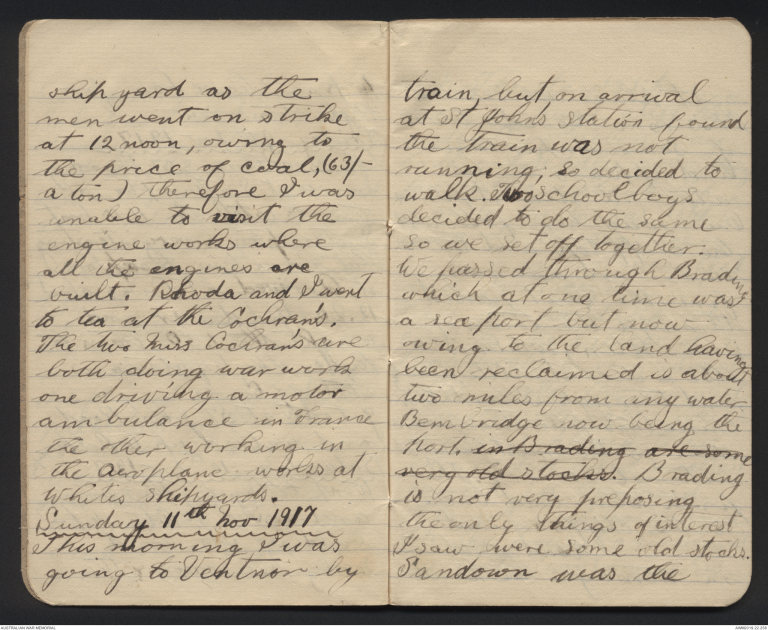 ship yard as the
men went on strike
at 12 noon, owing to
the price of coal, (63/-
a ton) therefore I was
unable to visit the
engine works where
all the engines are
built. Rhoda and I went
to tea at the Cochran's.
The two Miss Cochran's are
both doing war work
one driving a motor
ambulance in France
the other working in
the aeroplane works at
Whites shipyards.
Sunday 11th Nov 1917
This morning I was
going to Ventnor by
train, but on arrival
at St Johns station found
the train was not
running, so decided to
walk. Two schoolboys
decided to do the same
so we set off together.
We passed through Brading
which at one time was
a sea port but now
owing to the land having
been reclaimed is about
two miles from any water
Bembridge now being the
port. in Brading are some
very old stocks. Brading
is not very preposing
the only things of interest
I saw were some old stocks.
Sandown was the
AUSTRALIAN WAR MEMORIAL